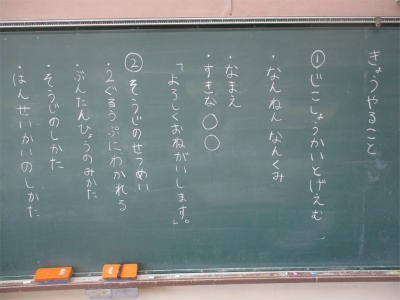 きょうやること
①じこしょうかいとげえむ
・なんねんなんくみ
・なまえ
・すきな○○
「よろしくおねがいします。」
②そうじのせつめい
・2ぐるうぷにわかれる
・ぶんたんひょうのみかた
・そうじのしかた
・はんせいかいのしかた